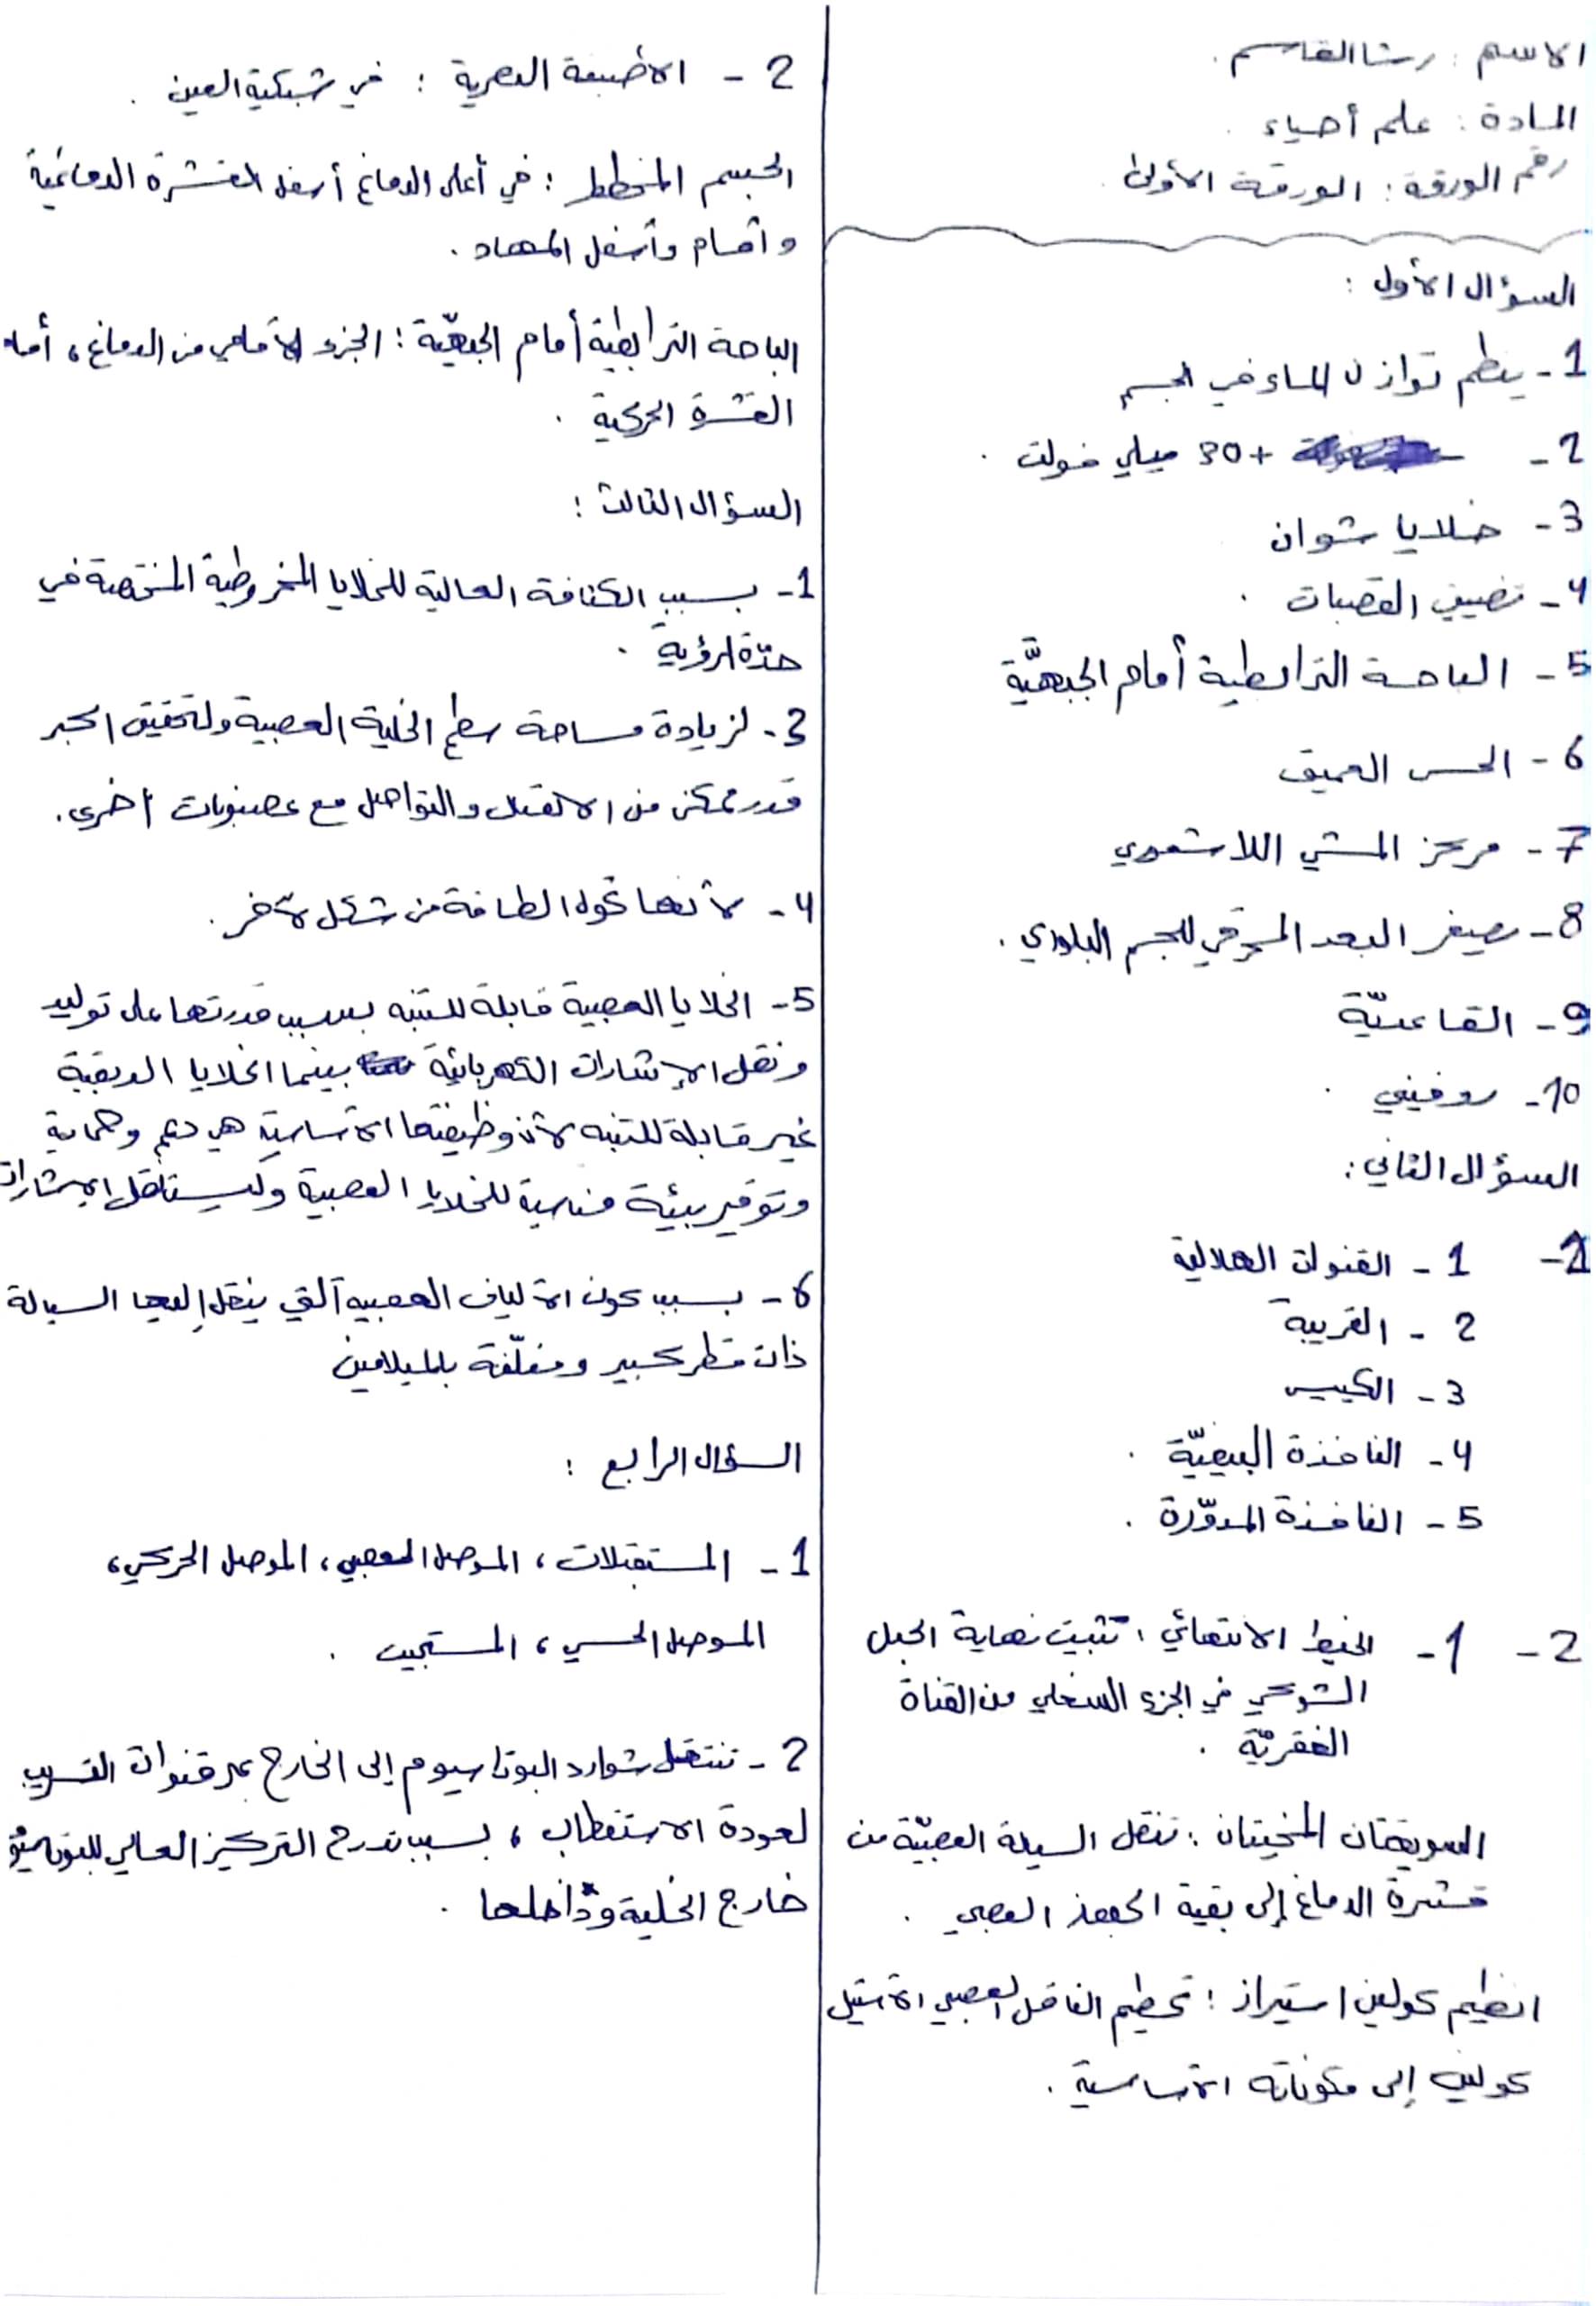 الاسم : رشا القاسم .
المادة : علم أحياء .
رقم الورقة : الورقة الأولى .
السؤال الأول :
1- ينظم توازن الماء في الجسم
2- +30 ميلي فولت .
3- خلايا شوان
4- تضييق القصبات .
5- الباحة الترابطية أمام الجبهيّة
6- الحس العميق
7- مركز المشي اللاشعوري
8- يصغر البعد المحرقي للجسم البلوري .
9- القاعديّة
10- روفيني .
السؤال الثاني :
1- 1- القنوات الهلالية
2- القريبة
3- الكييس
4- النافذة البيضيّة .
5- النافذة المدوّرة .
2- 1- الخيط الانتهائي : تثبيت نهاية الحبل
الشوكي في الجزء السفلي من القناة
الفقريّة .
السويقتان المخيتان : تنقل السيلة العصبيّة من
قشرة الدماغ إلى بقية الجهز العصبي .
انظيم كولين استيراز : تحطيم الناقل العصبي الأستيل
كولين إلى مكوناته الأساسية .
2- الأصبغة البصرية : في شبكية العين .
الجسم المخطط : في أعلى الدماغ أسفل القشرة الدماغية
وأمام وأسفل المهاد .
الباحة الترابطية أمام الجبهيّة : الجزء الأمامي من الدماغ ، أمام
القشرة الحركية .
السؤال الثالث :
1- بسبب الكثافة العالية للخلايا المخروطية المختصة في
حدّة الرؤية .
3- لزيادة مساحة سطح الخلية العصبية ولتحقيق أكبر
قدر ممكن من الاستقبال والتواصل مع عصبونات أخرى .
4- لأنها تحول الطاقة من شكل لآخر .
5- الخلايا العصبية قابلة للتنبه بسبب قدرتها على توليد
ونقل الإشارات الكهربائية بينما الخلايا الدبقية
غير قابلة للتنبه لأن وظيفتها الأساسية هي دعم وحماية
وتوفير بيئة مناسبة للخلايا العصبية وليس تناقل الإشارات
6- بسبب كون الألياف العصبية التي ينقل إليها السيالة
ذات قطر كبير ومغلّفة بالميلامين
السؤال الرابع :
1- المستقبلات ، الموصل العصبي ، الموصل الحركي ،
الموصل الحسي ، المستجيب .
2- تنتقل شوارد البوتاسيوم إلى الخارج عبر قنوات التسريب
لعودة الاستقطاب ، بسبب تدرج التركيز العالي للبوتاسيوم
خارج الخلية وداخلها .